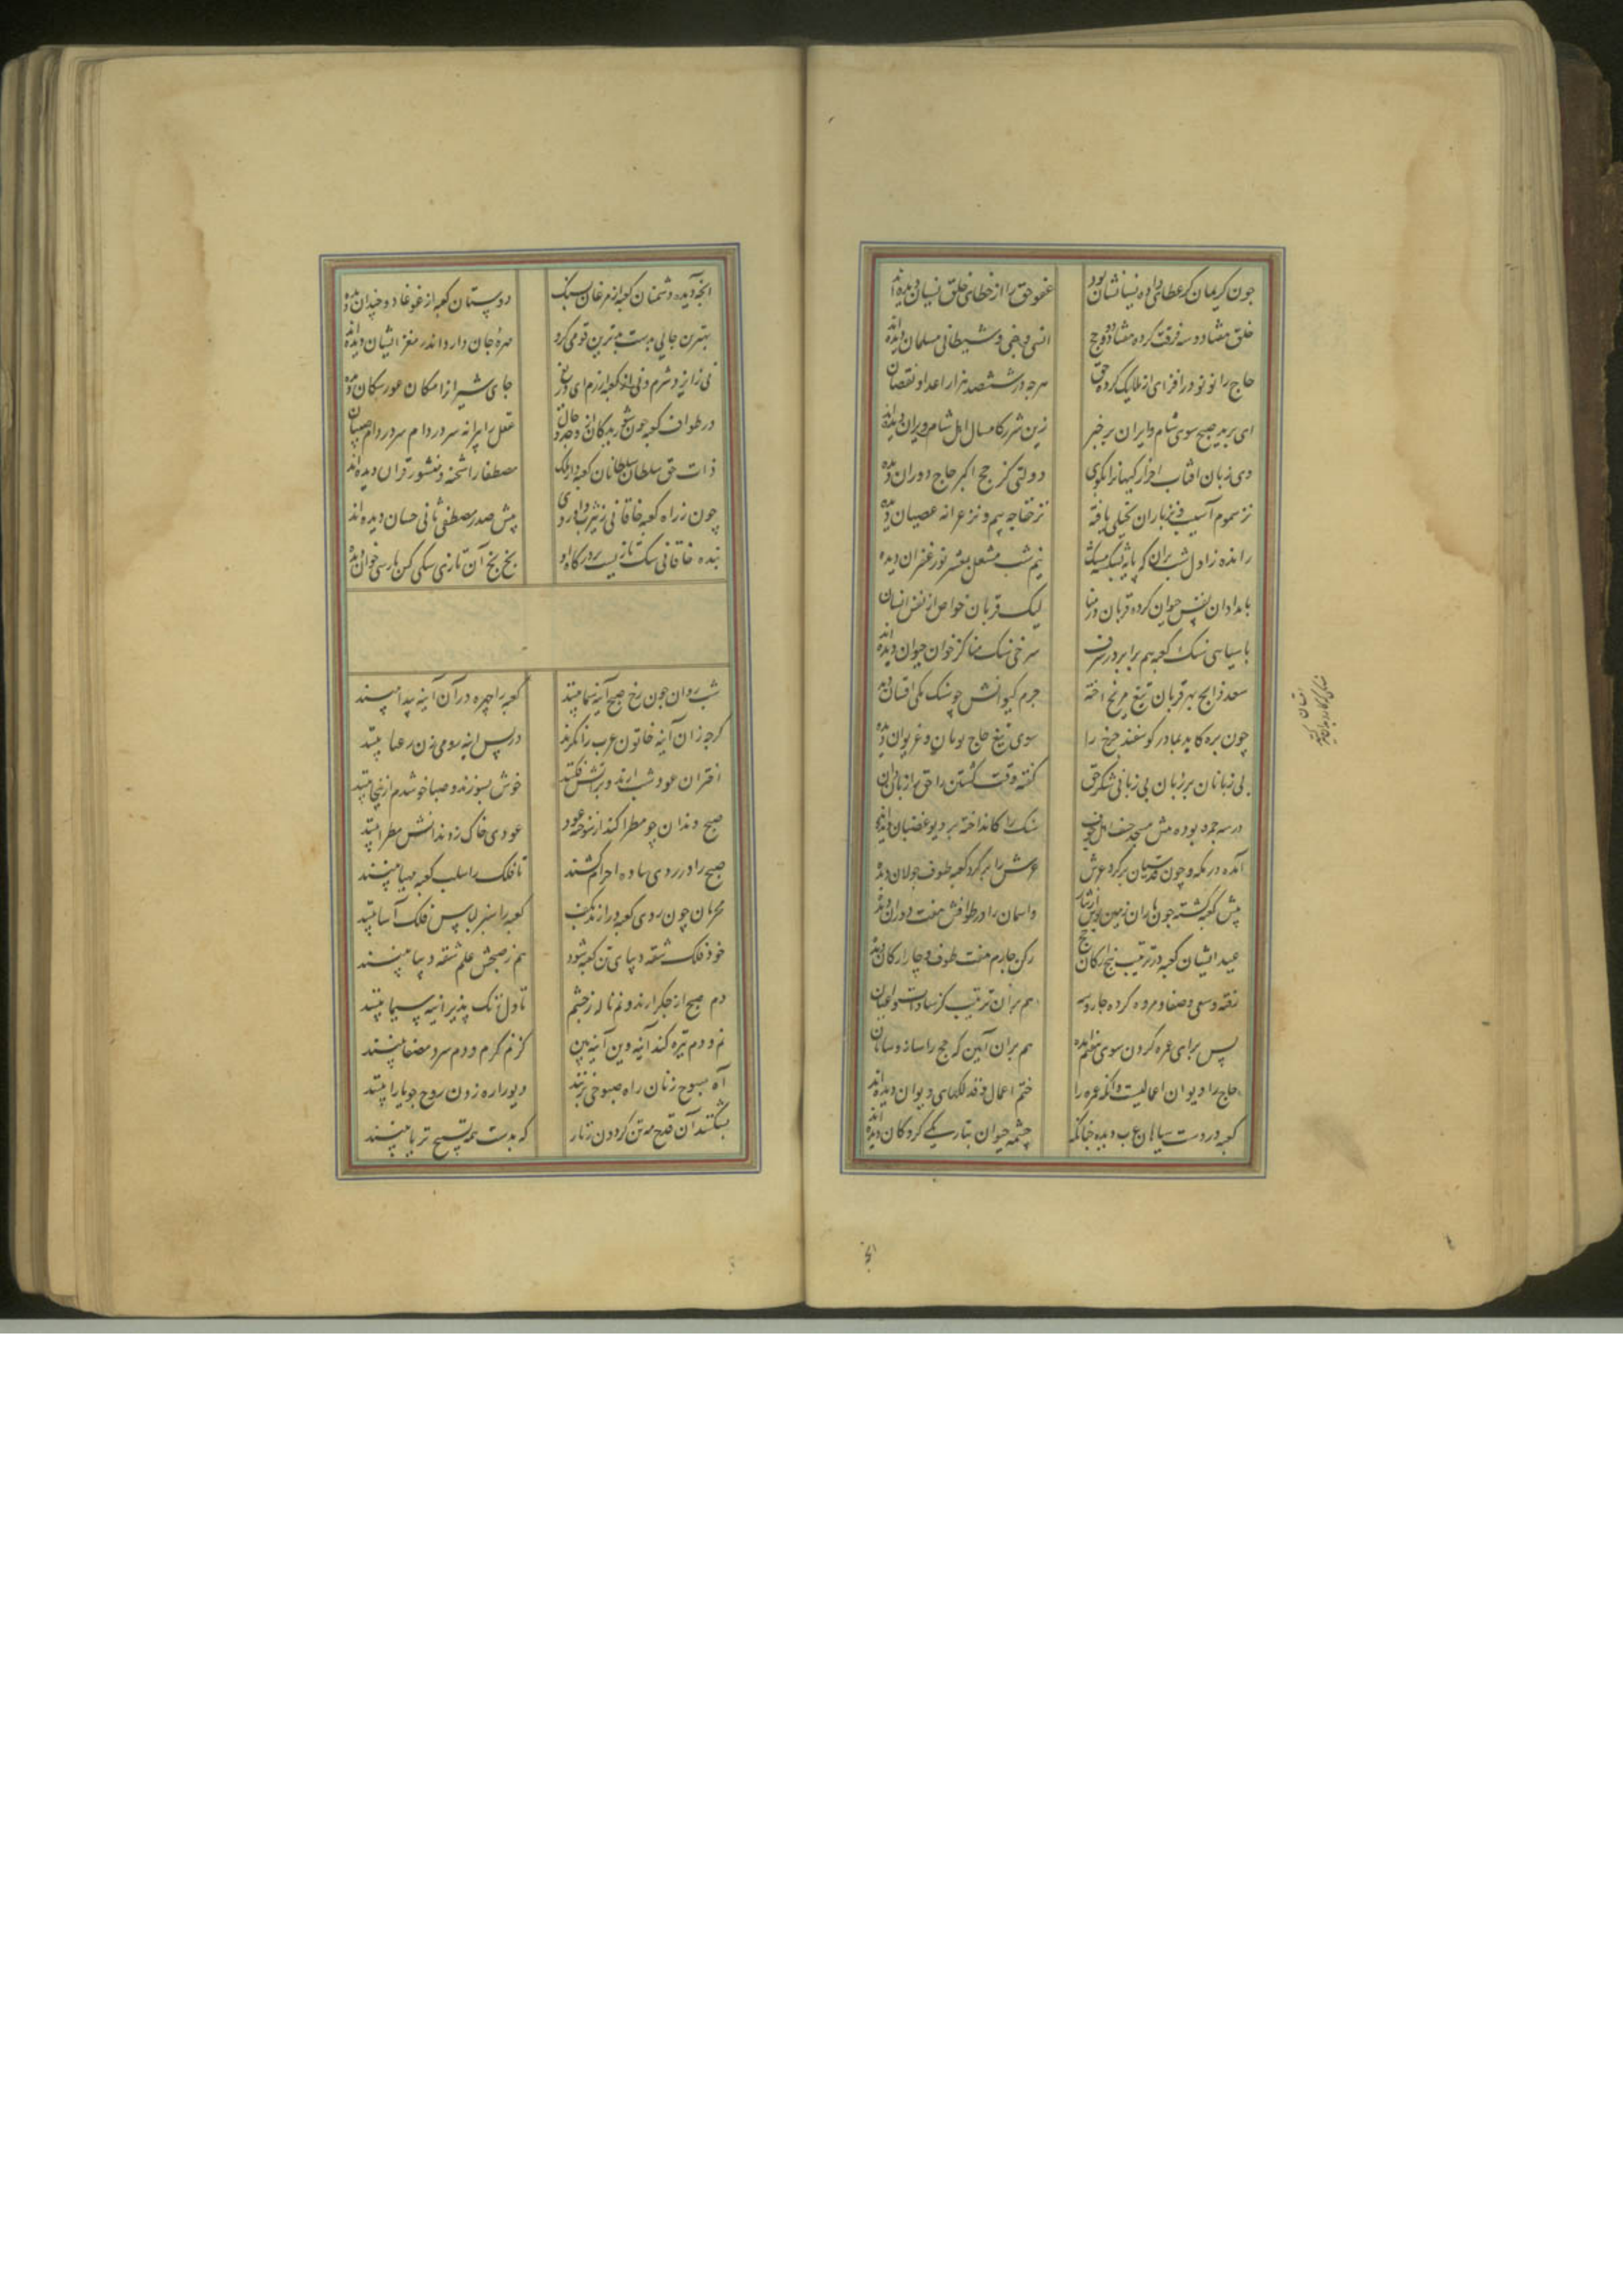 چون کریمان کز عطای داده نسیانشان بود عفو حق را از خطای خلق نسیان دیده‌اند
خلق هفتاد و سه فرقت کرده هفتاد و دو حج انسی و جنی و شیطانی مسلمان دیده‌اند
حاج را نو نو در افزای از ملایک کرده حق هرچه در ششصد هزار اعداد نقصان
ای برید صبح سوی شام و ایران بر خبر زین شرر کامسال اهل شام و ایران دیده‌اند
دی زبان آفتاب احرار کیهانرا بگوی دولتی کز حج اکبر حاج دوران دیده
نز سموم آسیب و نز باران بخیلی یافته نز خفاجه بیم و نز غزانه عصیان دیده
رانده ز اول شب بران که پایه و بشکسته سنگ نیم شب مشعل بمشعر نور غفران دیده
بامدادان نفس حیوان کرده قربان در منا لیک قربان خواص از نفس انسان
با سیاهی سنگ کعبه هم برابر در شرف سرخی سنگ منا کز خون حیوان دیده‌اند
سعد ذابح بهر قربان تیغ مریخ آخته جرم کیوانش چو سنگ مکی افسان دیده
چون بره کاید بمادر گوسفند چرخ را سوی تیغ حاج پویان و غریوان دیده
بی زبانان بر زبان بی زبانی شکر حق گفته وقت کشتن و حق را زبان‌دان
در سه جمره بوده پیش مسجد خیف اهل خوف سنگ را کانداخته بر دیو غضبان دیده
آمده در مکه و چون قدسیان بر گرد عرش عرش را بر گرد کعبه طوف و جولان دیده
پیش کعبه گشته چون باران زمین بوس از نیاز و آسمان را در طوافش هفت دوران دیده
عید ایشان کعبه در ترتیب پنج ارکان حج رکن چارم هفت طوف و چار ارکان دیده
رفته و سعی صفا و مروه کرده چار و سه هم بران ترتیب کز سادات و اعیان
پس برای عمره کردن سوی تنعیم آمده هم بران آیین که حج را ساز و سامان
حاج را دیوان اعمالست وانگه عمره را ختم اعمال و فذلکهای دیوان دیده‌اند
کعبه در دست سیاهان عرب دیده چنانک چشمه حیوان بتاریکی گروگان دیده
آنچه دیده دشمنان کعبه از مرغان بسنگ دوستان کعبه از غوغا دو چندان دیده
بهترین جایی بدست بدترین قومی گرو مهره جاندار و اندر مغز ثعبان دیده
نی ز ایزد شرم و نی از کعبه آزرم ای دریغ جای شیران را سگان عور سکان دیده
در طواف کعبه چون شوریدگان از وجد و حال عقل را پیرانه سر در ام صبیان
ذات حق سلطان سلطانان کعبه دار ملک مصطفا را شحنه و منشور قرآن دیده‌اند
چون ز راه کعبه خاقانی بیثرب داد روی پیش صدر مصطفی ثانی حسان دیده‌اند
بنده خاقانی سگ تازیست بر درگاه او بخ بخ آن تازی سگی کش پارسی خوان دیده
شب روان چون رخ صبح آینه سیما بینند کعبه را چهره در آن آینه پیدا بینند
گرچه زان آینه خاتون عرب را نگرند در پس آینه رومی زن رعنا بینند
اختران عود شب آرند و بر آتش فکنند خوش بسوزند و صبا خوشدم از آنجا بینند
صبح دندان چو مطرا کند از سوخته عود عودی خاک ز دندانش مطرا بینند
صبح را در زردی ساده احرام کشند تا فلک را سلب کعبه مهیا بینند
محرمان چون ردی کعبه درآرند بکتف کعبه را سبز لباس فلک آسا بینند
خود فلک شقه دیبای تن کعبه شود هم ز صبحش علم شقه دیبا بینند
دم صبح از جگر آرند و نم ژاله ز چشم تا دل زنگ پذیر آینه سیما بینند
نم و دم تیره کند آینه وین آینه بین کز نم گرم و دم سرد مصفا بینند
آه صبوح زنان راه صبوحی بزنند دیو را ره زدن روح چو یارا بینند
بشکنند آن قدح مه تن گردون زنار که بدست همه تسبیح ثریا بینند